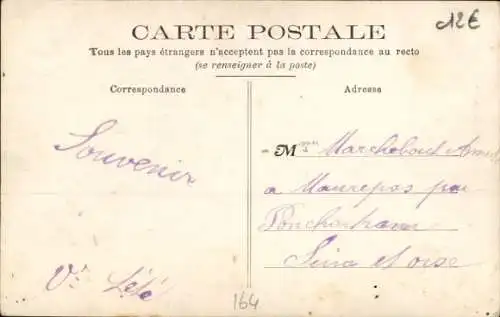 12€
CARTE POSTALE
Tous les pays étrangers n'acceptent pas la correspondance au recto
(se renseigner à la poste)
Correspondance
Adresse
Souvenir
Mme Marchebout
a Maurepas par
Ponchartrain
Seine et oise
164